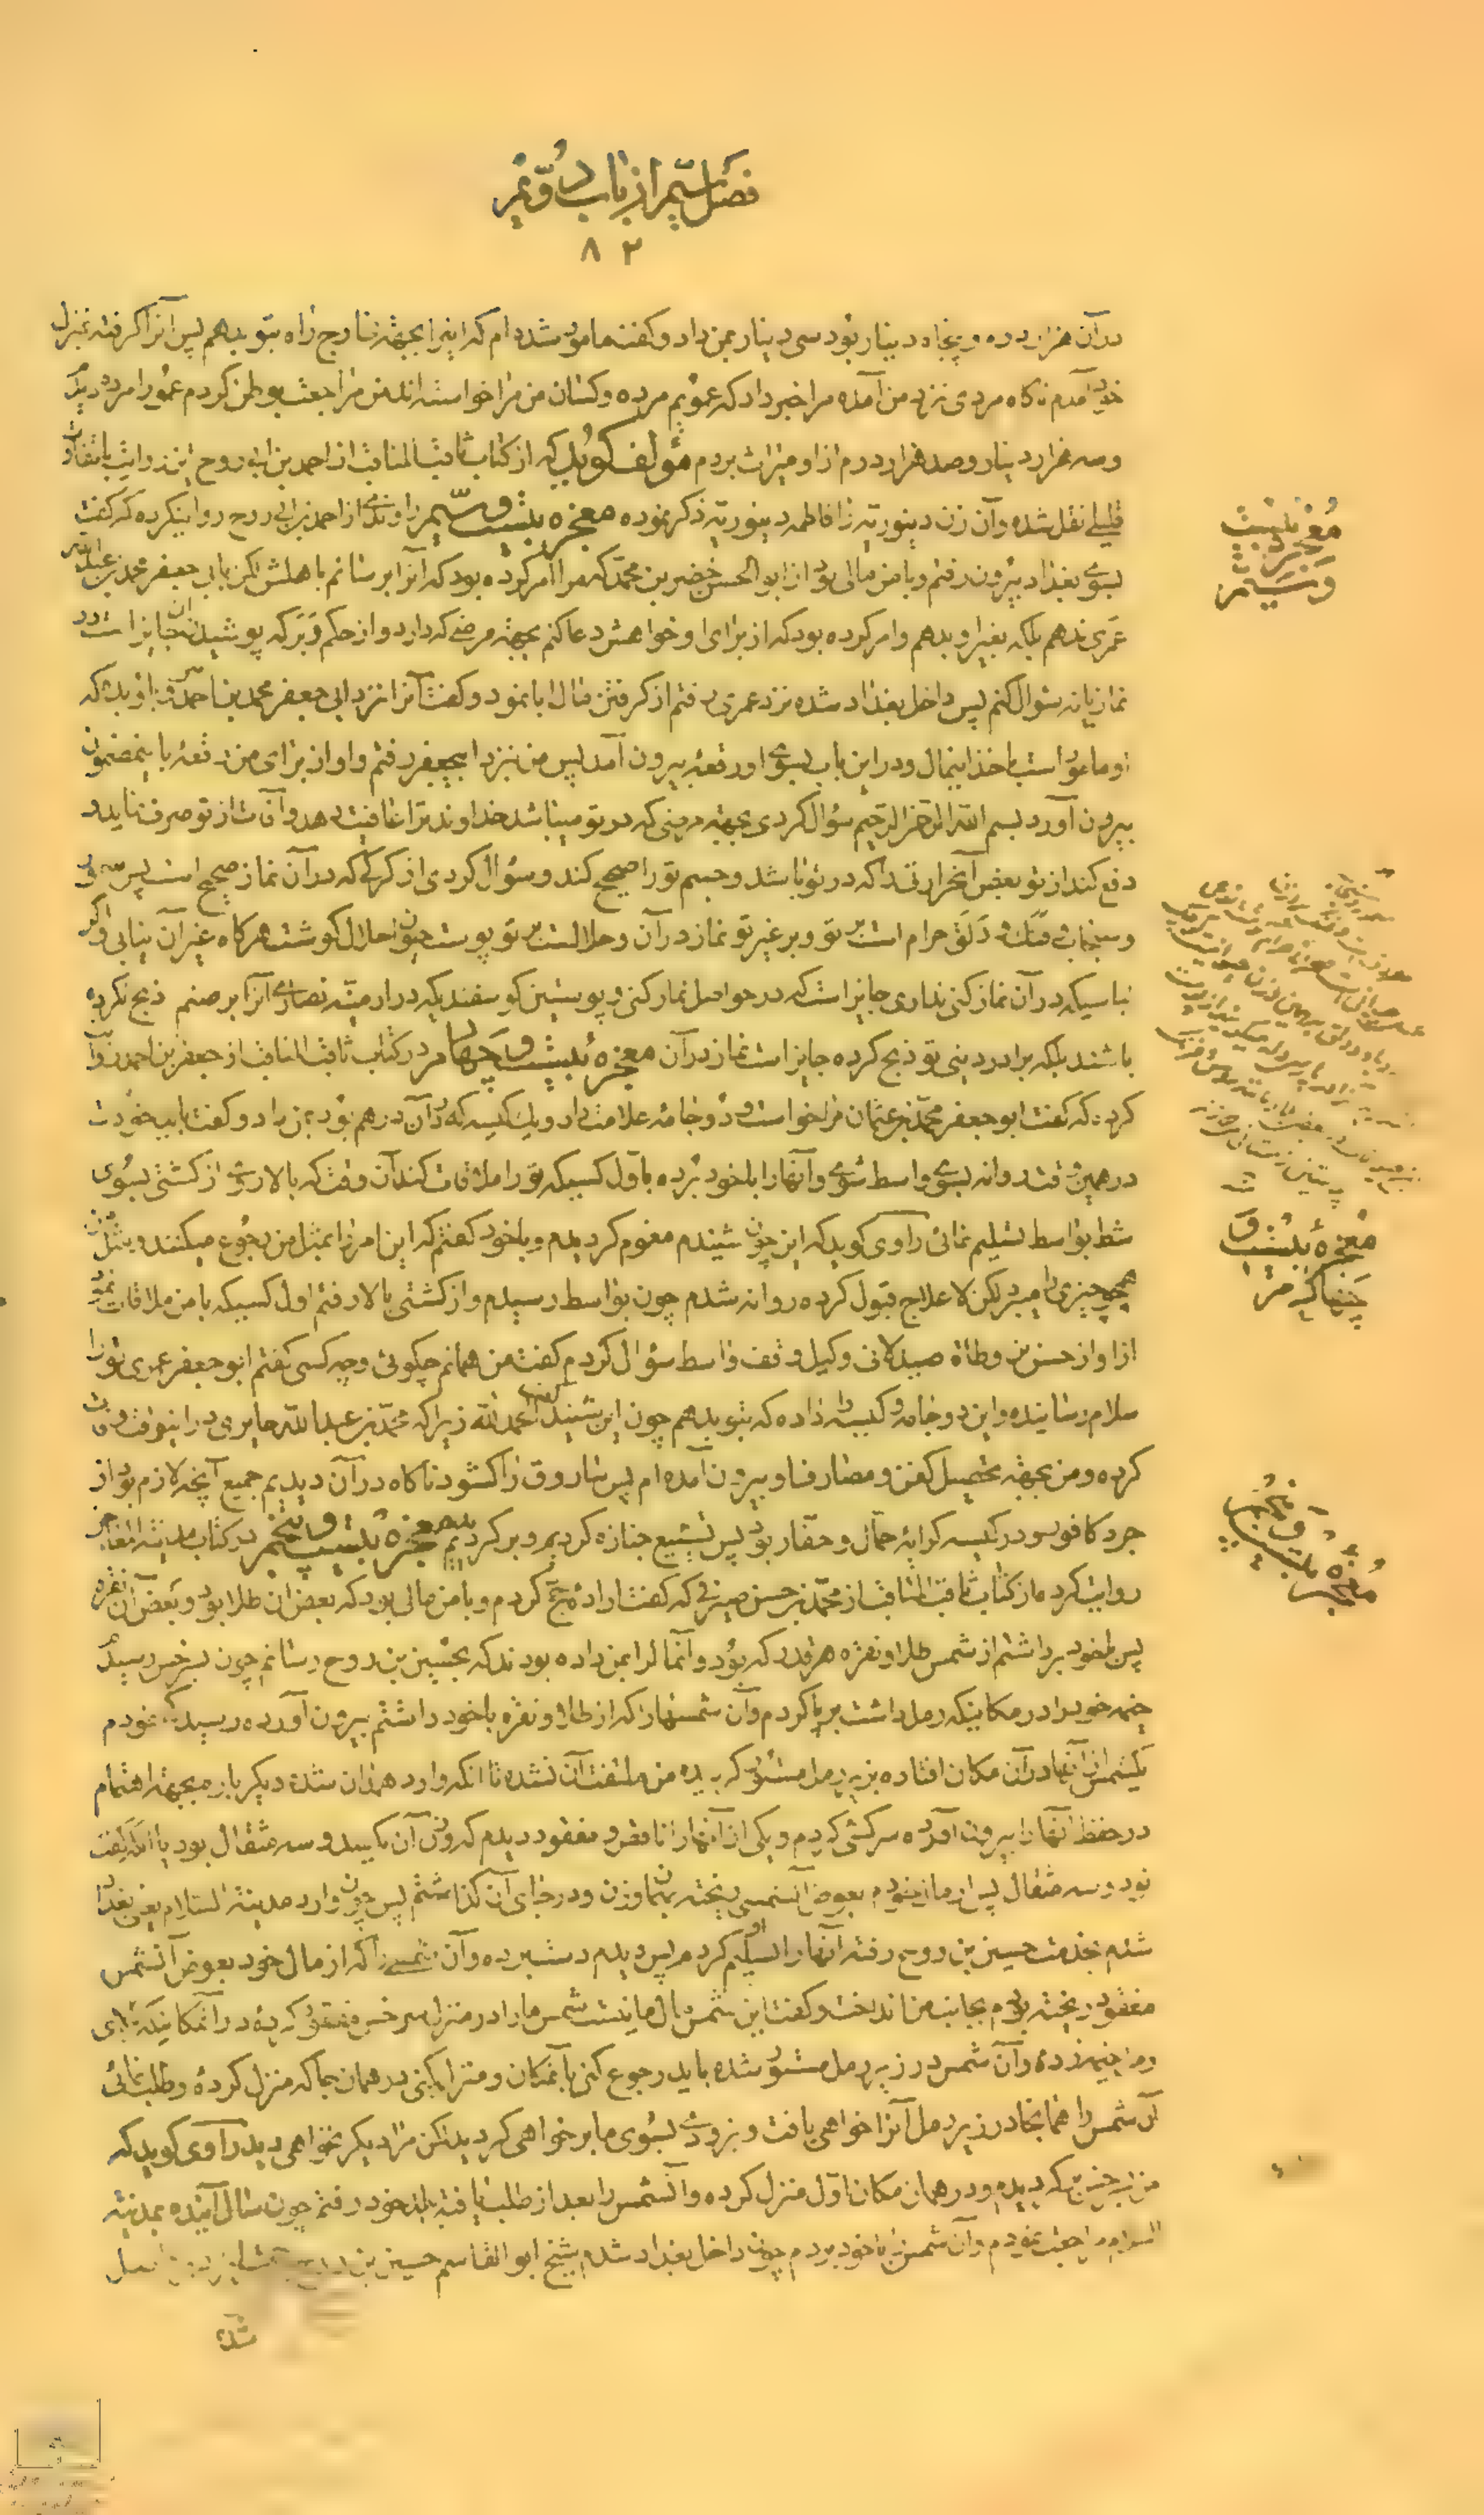 فصل سیّم از باب دوّیم
۸۲
در آن هزار درهم و پنجاه دینار بود سی دینار بمن داد و گفت مامور شده‌ام که اینرا بجهة مخارج راه بتو بدهم پس آنرا گرفته بمنزل
خود آمدم ناگاه مردی نزد من آمده مرا خبر داد که عمویم مرده و کسان من مرا خواسته‌اند من مراجعت بوطن کردم عمو را مرده دیدم
و سه هزار دینار و صد هزار درم از او میراث بردم مؤلف گوید که از کتاب ثاقب المناقب از احمد بن ابی روح این روایت باتفاوت
قلیلی نقل شده و آن زن دینوریه را فاطمه دینوریه ذکر نموده معجزه بیست و سیّم راوندی از احمد بن ابی روح روایت کرده که گفت
بسوی بغداد بیرون رفتم و با من مالی بود از ابو الحسن خضر بن محمد که مرا امر کرده بود که آنرا برسانم باهلش لکن بابی جعفر محمد بن عبدالله
عمری ندهم بلکه بغیر او بدهم و امر کرده بود که از برای او خواهش دعا کنم بجهة مرضی که دارد و از حکم وبر که پوشیدن آن جایز است در
نماز یا نه سؤال کنم پس داخل بغداد شده نزد عمری رفتم از گرفتن مال ابا نمود و گفت آنرا نزد ابی جعفر محمد بن احمد بر و باو بده که
او مامور است باخذ اینمال و در این باب بسوی او رقعه بیرون آمد پس من نزد ابیجعفر رفتم و او از برای من رقعه باینمضمون
بیرون آورد بسم الله الرحمن الرحیم سؤال کردی بجهة مرضی که در تو میباشد خداوند ترا عافیت دهد و آفات از تو صرف نماید و
دفع کند از تو بعض آنحرارت را که در تو باشد و جسم تو را صحیح کند و سؤال کردی از کرکی که در آن نماز صحیح است پس
و سنجاب و فنک و دلق حرام است بر تو و بر غیر تو نماز در آن و حلالست بر تو پوست حیوان حلال گوشت هرگاه غیر آن نیابی و اگر
لباسیکه در آن نماز کنی نداری جایز است که در حواصل نماز کنی و پوستین گوسفندیکه در ارمنیّه نصاری آنرا بر صنم ذبح نکرده
باشند بلکه برادر دینی تو ذبح کرده جایز است نماز در آن معجزه بیست و چهارم در کتاب ثاقب المناقب از جعفر بن احمد روایت
کرده که گفت ابو جعفر محمد بن عثمان مرا خواست و دو جامه علامت‌دار و یک کیسه که در آن درهم بود بمن داد و گفت باید خودت
در همین وقت روانه بسوی واسط شوی و آنها را با خود برده باول کسیکه تو را ملاقات کند آن وقت که بالا روی از کشتی بسوی
شط بواسط تسلیم نمائی راوی گوید که این چون شنیدم مغموم گردیدم و با خود گفتم که این امر را بمثل من رجوع میکنند و مثل من
همچو چیزی را میبرد لکن لاعلاج قبول کرده روانه شدم چون بواسط رسیدم و از کشتی بالا رفتم اول کسیکه با من ملاقات نمود
از او از حسن بن وطاة صیدلانی وکیل وقف واسط سؤال کردم گفت من همانم چگونی و چه کسی گفتم ابو جعفر عمری تو را
سلام رسانیده و این دو جامه و کیسه را داده که بتو بدهم چون این شنید گفت الحمد لله زیرا که محمد بن عبدالله حایری در اینوقت وفات
کرده و من بجهة تحصیل کفن و مصارف او بیرون آمده‌ام پس صاروق را گشود ناگاه در آن دیدیم جمیع آنچه لازم بود از
جرد کافور و در کیسه کرایه حمال و حفار بود پس تشییع جنازه کردیم و برگردیدیم معجزه بیست و پنجم در کتاب مدینة المعاجز
روایت کرده از کتاب ثاقب المناقب از محمد بن حسن صیرفی که گفت اراده حج کردم و با من مالی بود که بعض آن طلا بود و بعض آن نقره
پس با خود برداشتم از شمس طلا و نقره هر قدر که بود و آنمال را بمن داده بودند که بحسین بن روح رسانم چون بسرخس رسیدم
خیمه خود را در مکانیکه رمل داشت برپا کردم و آن شمسها را که از طلا و نقره با خود داشتم بیرون آورده رسیدگی نمودم
یکشمس از آنها در آن مکان افتاده بزیر رمل مستور گردیده من ملتفت آن نشده تا آنکه وارد همدان شده دیگر باره بجهة اهتمام
در حفظ آنها را بیرون آورده سرکشی کردم و یکی از آنها را ناقص و مفقود دیدم که وزن آن یکصد و سه مثقال بود یا آنکه گفت
نود و سه مثقال پس از مال خودم بعوض آنشمسی ریخته بهمان وزن و در جای آن گذاشتم پس چون وارد مدینة السلام یعنی بغداد
شدم بخدمت حسین بن روح رفته آنها را تسلیم او کردم پس دیدم دست برده و آن شمسی را که از مال خود بعوض آنشمس
مفقود ریخته بودم بجانب من انداخت و گفت این شمس مال ما نیست شمس ما را در منزل سرخس مفقود کرده در آنمکانیکه
خیمه زده و آن شمس در زیر رمل مستور شده باید رجوع کنی بآنمکان و منزل کنی در همان جا که منزل کرده و طلب نمائی
آن شمس را همانجا در زیر رمل آنرا خواهی یافت و بزودی بسوی ما بر خواهی گردید لکن مرا دیگر نخواهی دید راوی گوید که
من بسرخس برگردیدم و در همان مکان اول منزل کرده و آنشمس را بعد از طلب یافته ببلد خود رفتم چون سال آینده بمدینة
السلام مراجعت نمودم و آن شمس را با خود بردم چون داخل بغداد شدم شیخ ابو القاسم حسین بن روح
شده
معجزه بیست
و سیّم
معجزه بیست و
چهارم
معجزه بیست
و پنجم